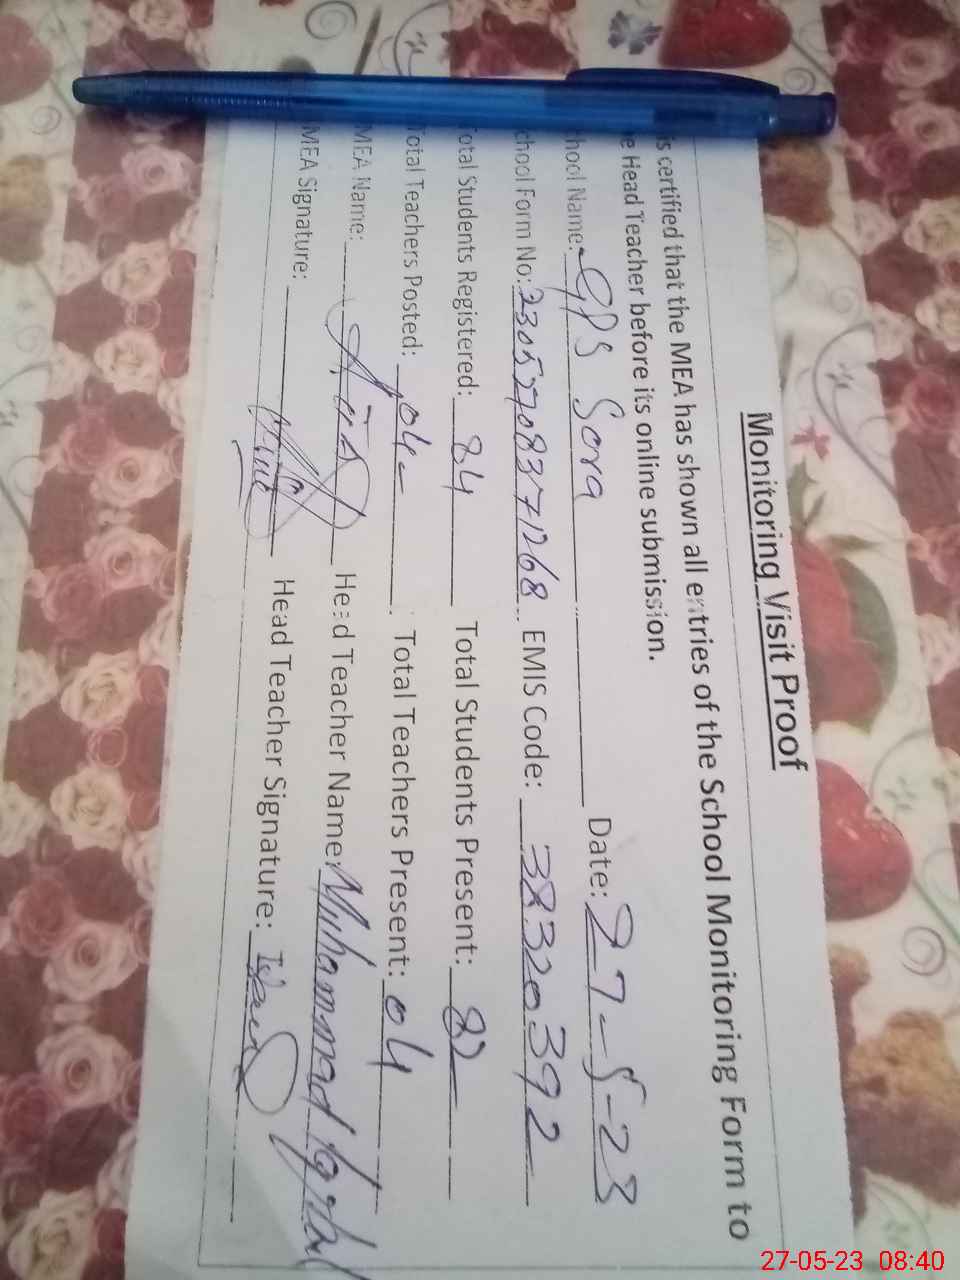 Monitoring Visit Proof
is certified that the MEA has shown all entries of the School Monitoring Form to
e Head Teacher before its online submission.
hool Name: GPS Sora Date: 27-5-23
chool Form No: 23057708371268 EMIS Code: 38320392
otal Students Registered: 84 Total Students Present: 82
Total Teachers Posted: 04 Total Teachers Present: 04
MEA Name: Head Teacher Name: Muhammad Iqbal
MEA Signature: Head Teacher Signature:
27-05-23 08:40